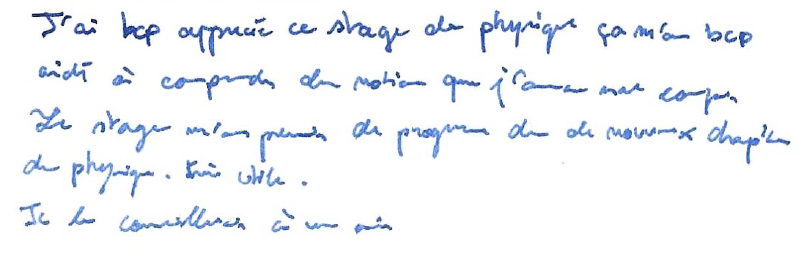 J'ai bcp apprécié ce stage de physique ça m'a bcp
aidé à comprendre des notions que j'avais mal compris
Le stage m'a permis de progresser dans de nouveaux chapitres
de physique. Très utile.
Je le conseillerais à un ami